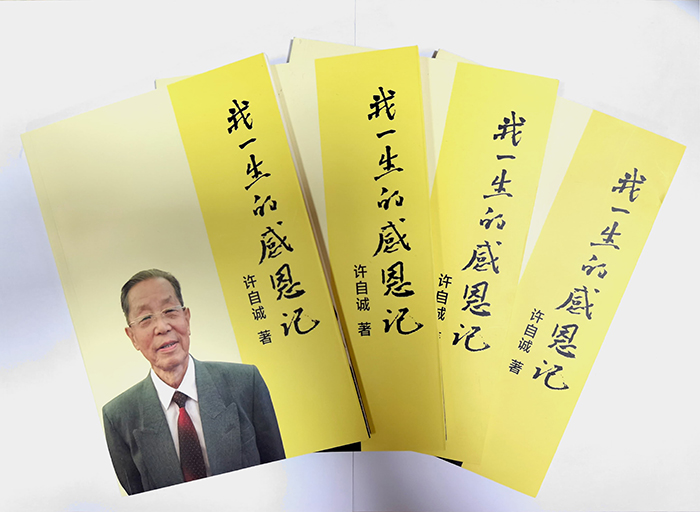 我一生的感恩记
许自诚 著
我一生的感恩记
许自诚 著
我一生的感恩记
许自诚 著
我一生的感恩记
许自诚 著